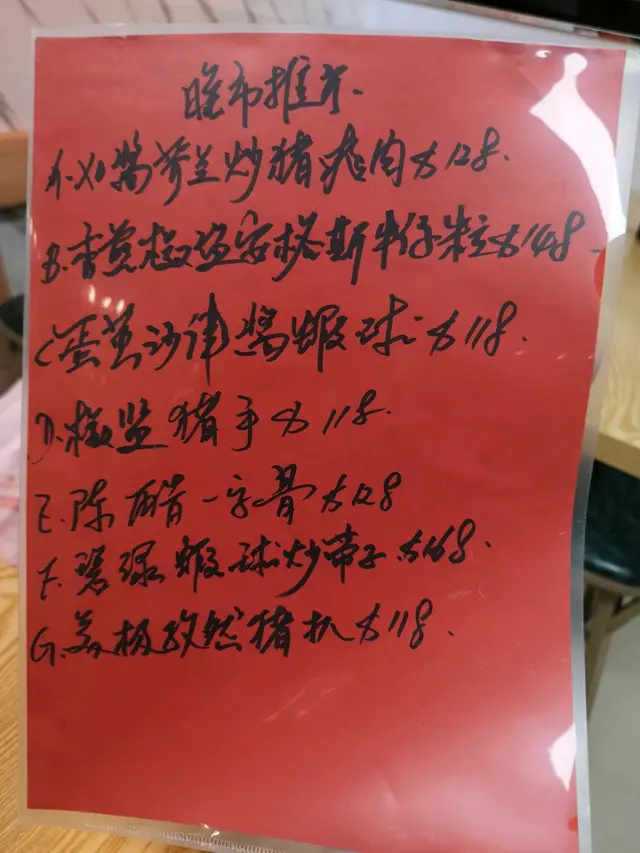 晚市推介.
A.XO醬芥兰炒猪爽肉$128.
B.香茅椒盐安格斯牛仔粒$148
C.蛋黄沙律醬蝦球$118.
D.椒盐猪手$118.
E.陈醋一字骨$128
F.碧绿蝦球炒带子$168.
G.孜然猪扒$118.